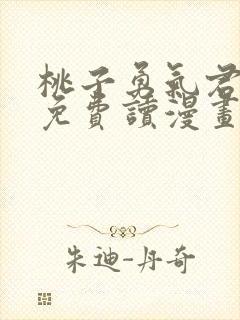 桃子勇氣君
免費讀漫畫
朱迪-丹奇